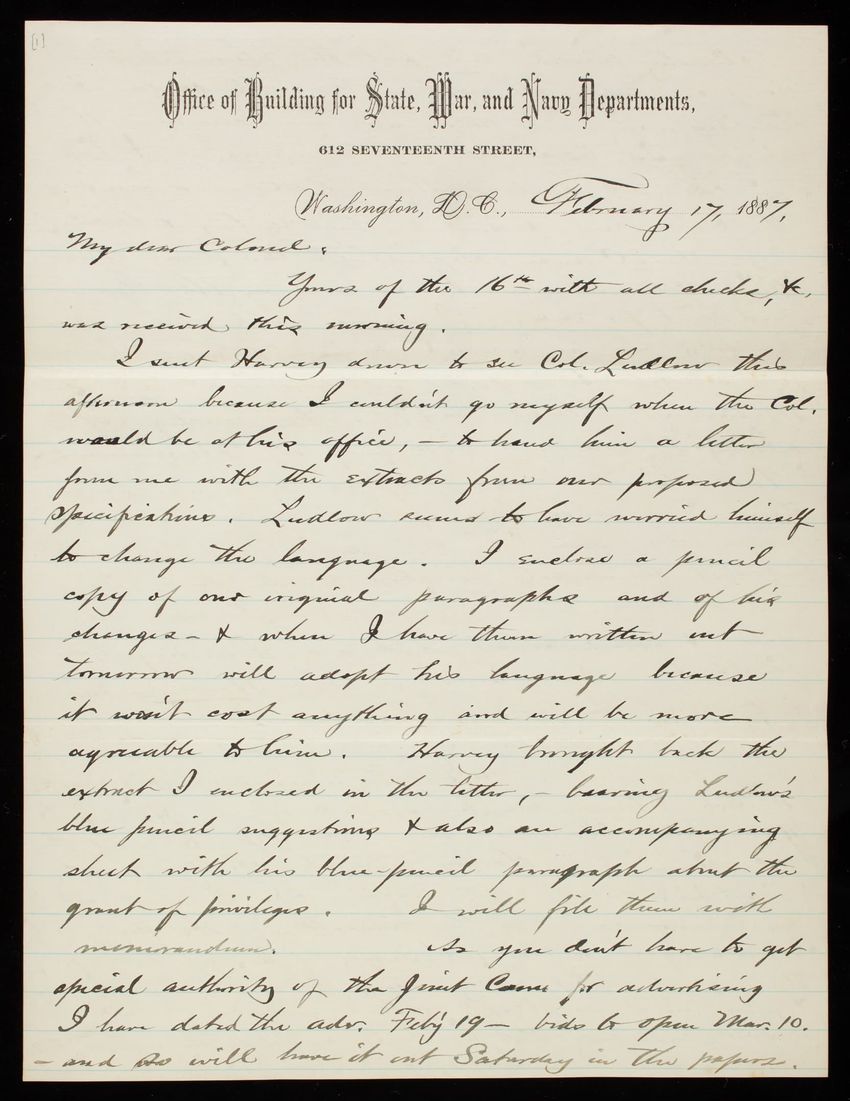 [1]
Office of Building for State, War, and Navy Departments,
612 SEVENTEENTH STREET,
Washington, D.C., February 17, 1887.
My dear Colonel:
Yours of the 16th with all checks, &c,
was received this morning.
I sent Harvey down to see Col. Ludlow this
afternoon because I couldn't go myself when the Col.
would be at his office, - to hand him a letter
from me with the extracts from our proposed
specifications. Ludlow seems to have worried himself
to change the language. I enclose a pencil
copy of our original paragraphs and of his
changes - & when I have them written out
tomorrow will adopt his language because
it won't cost anything and will be more
agreeable to him. Harvey brought back the
extract I enclosed in the letter, - bearing Ludlow's
blue pencil suggestions & also an accompanying
sheet with his blue-pencil paragraph about the
grant of privileges. I will file them with
memorandum. As you don't have to get
special authority of the Joint Comn for advertising
I have dated the adv. Feb'y 19 - bids to open Mar. 10.
- and so will have it out Saturday in the papers.